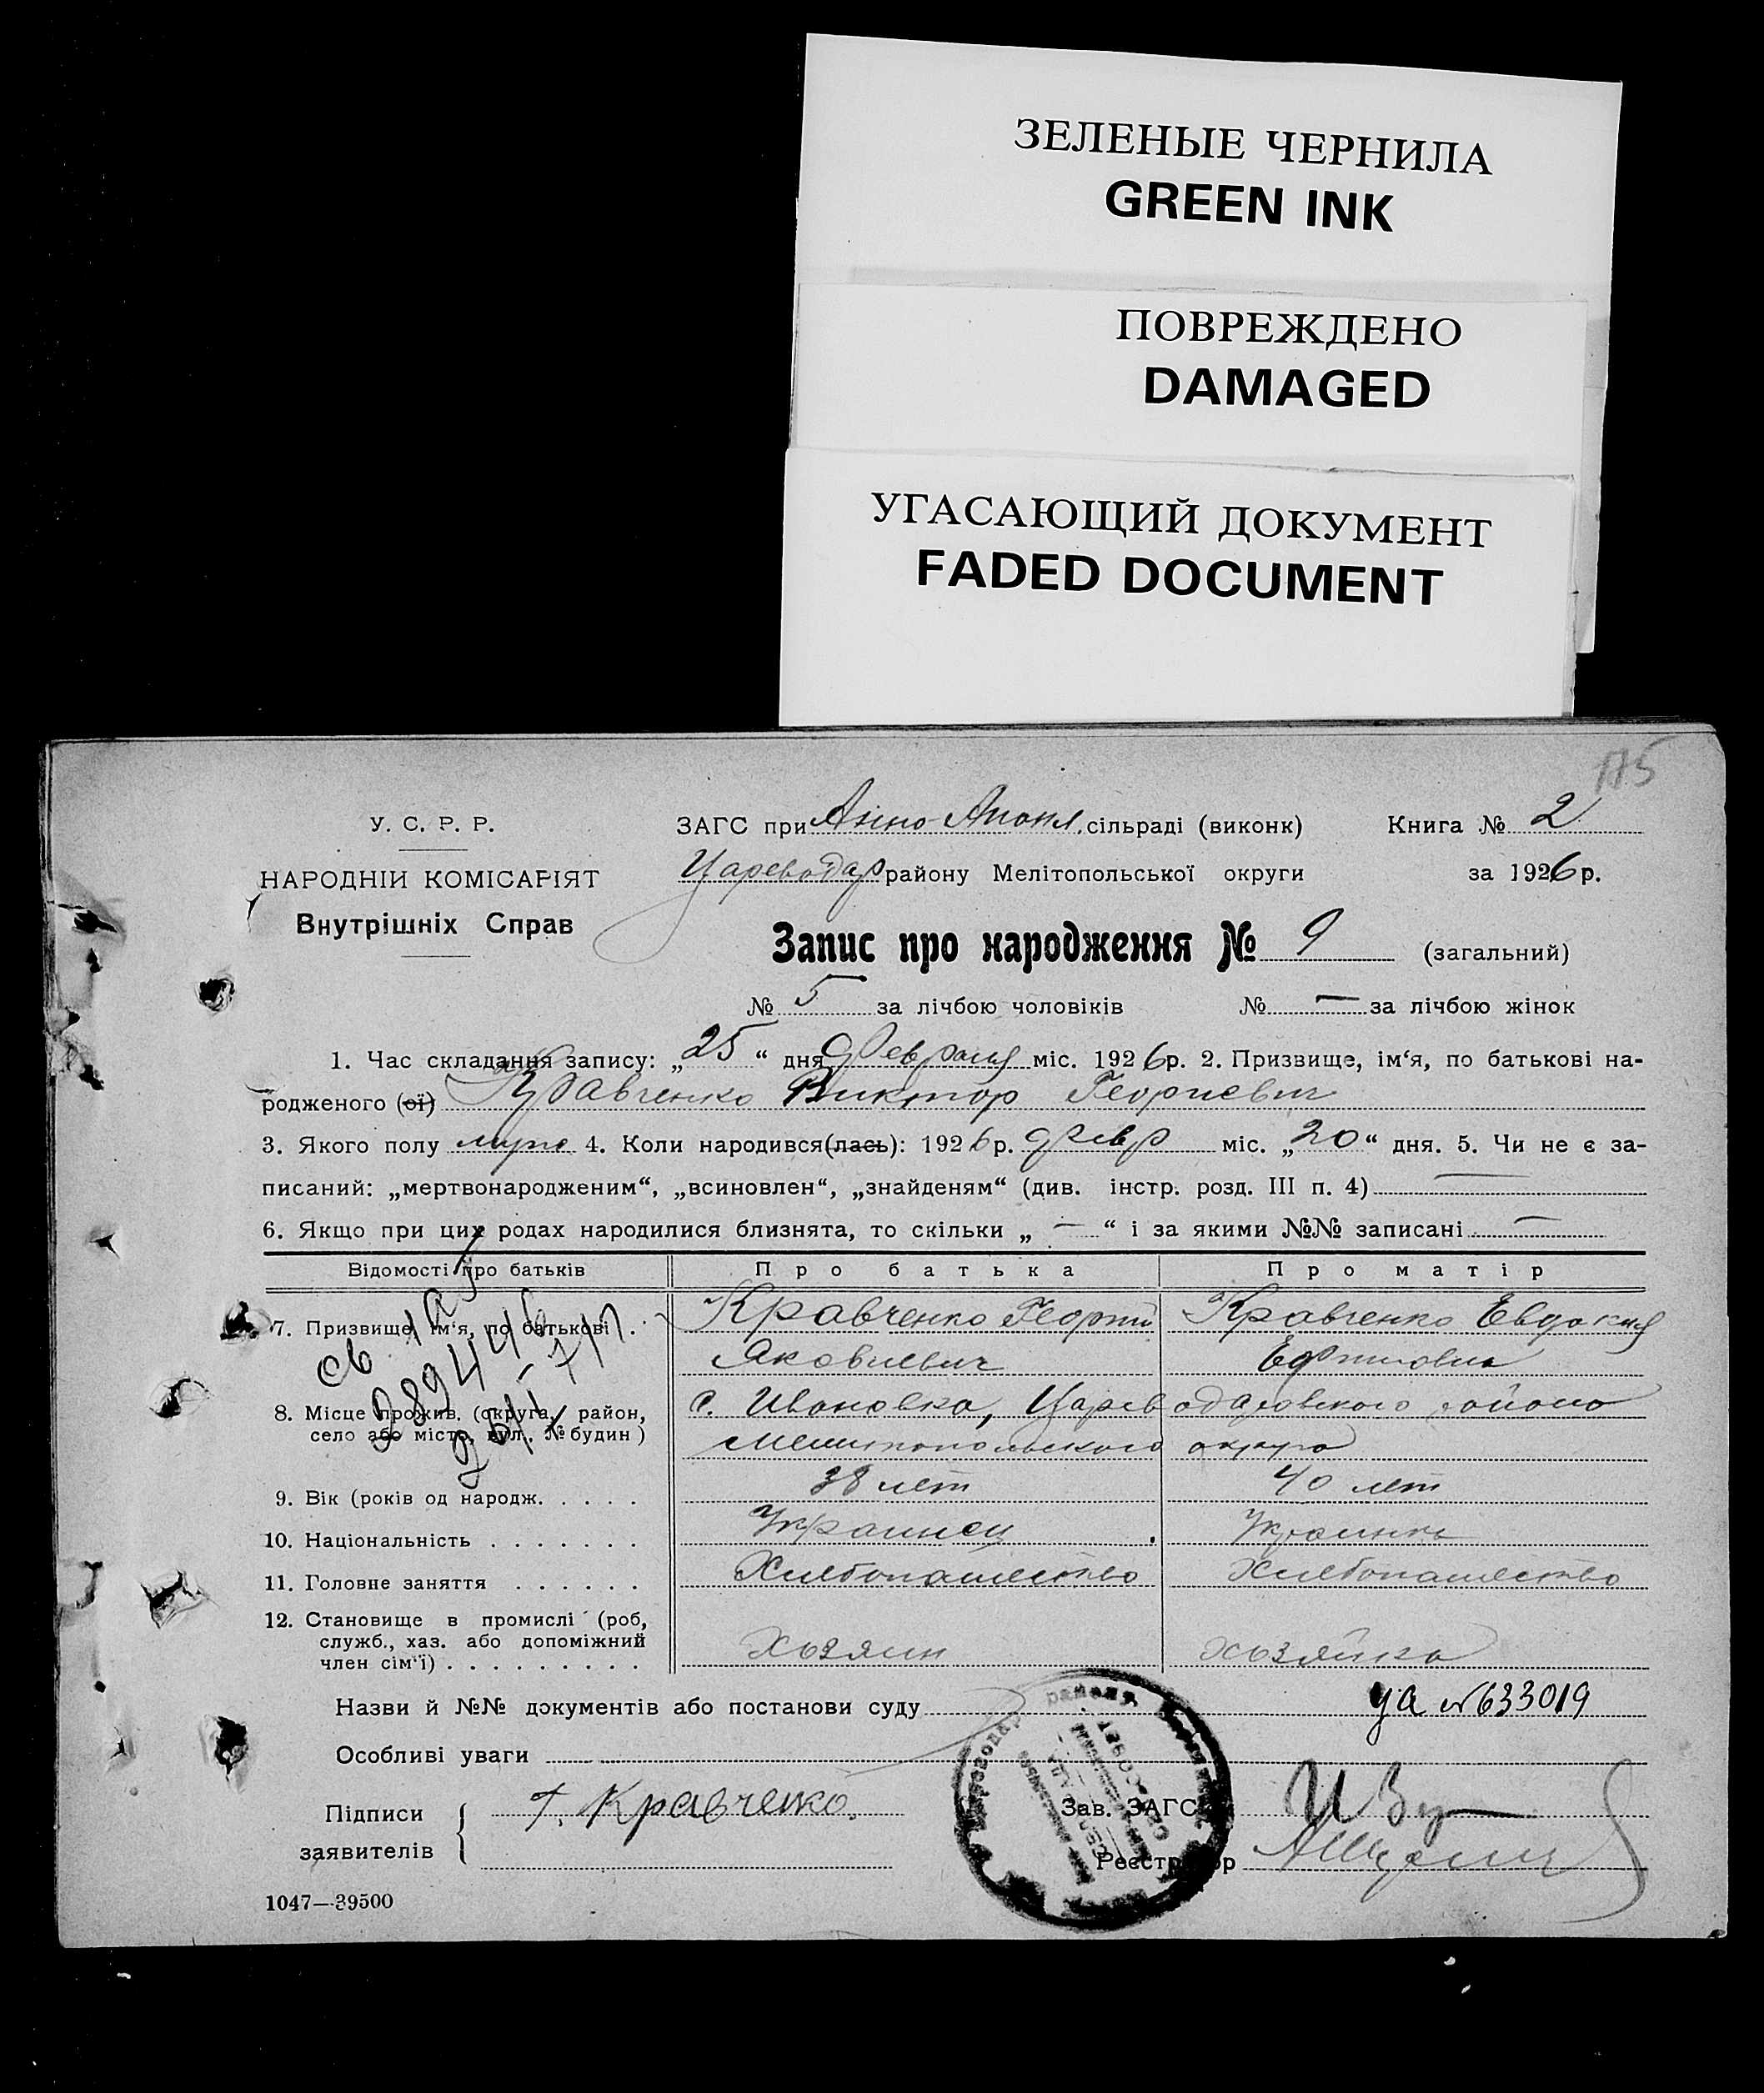 ЗЕЛЕНЫЕ ЧЕРНИЛА
GREEN INK
ПОВРЕЖДЕНО
DAMAGED
УГАСАЮЩИЙ ДОКУМЕНТ
FADED DOCUMENT
175
У. С. Р. Р.
НАРОДНІЙ КОМІСАРІЯТ
Внутрішніх Справ
ЗАГС при Анно-Апокл. сільраді (виконк) Книга № 2
Цареводар району Мелітопольської округи за 1926 р.
Запис про народження № 9 (загальний)
№ 5 за лічбою чоловіків № — за лічбою жінок
1. Час складання запису: „25“ дня Февраля міс. 1926 р. 2. Призвище, ім‘я, по батькові на-
родженого (ої) Кравченко Виктор Георгиевич
3. Якого полу муж 4. Коли народився(лась): 1926 р. февр міс. „20“ дня. 5. Чи не є за-
писаний: „мертвонародженим“, „всиновлен“, „знайденям“ (див. інстр. розд. III п. 4) —
6. Якщо при цих родах народилися близнята, то скільки „ — “ і за якими №№ записані —
Відомості про батьків Про батька Про матір
7. Призвище, ім‘я, по батькові . Кравченко Георгий Кравченко Евдокия
Яковлевич
8. Місце прожив. (округа, район, с. Ивановка, Цареводаровского района
село або місто, вул. № будин) Мелитопольского округа
9. Вік (років од народж. . . . . 38 лет 40 лет
10. Національність . . . . . . . Украинец Украинка
11. Головне заняття . . . . . . Хлебопашество Хлебопашество
12. Становище в промислі (роб,
служб., хаз. або допоміжний
член сім‘ї) . . . . . . . . . Хозяин хозяйка
Назви й №№ документів або постанови суду уа №633019
Особливі уваги
Підписи
заявителів
Г. Кравченко.
Зав. ЗАГС
Реєстратор
1047—39500